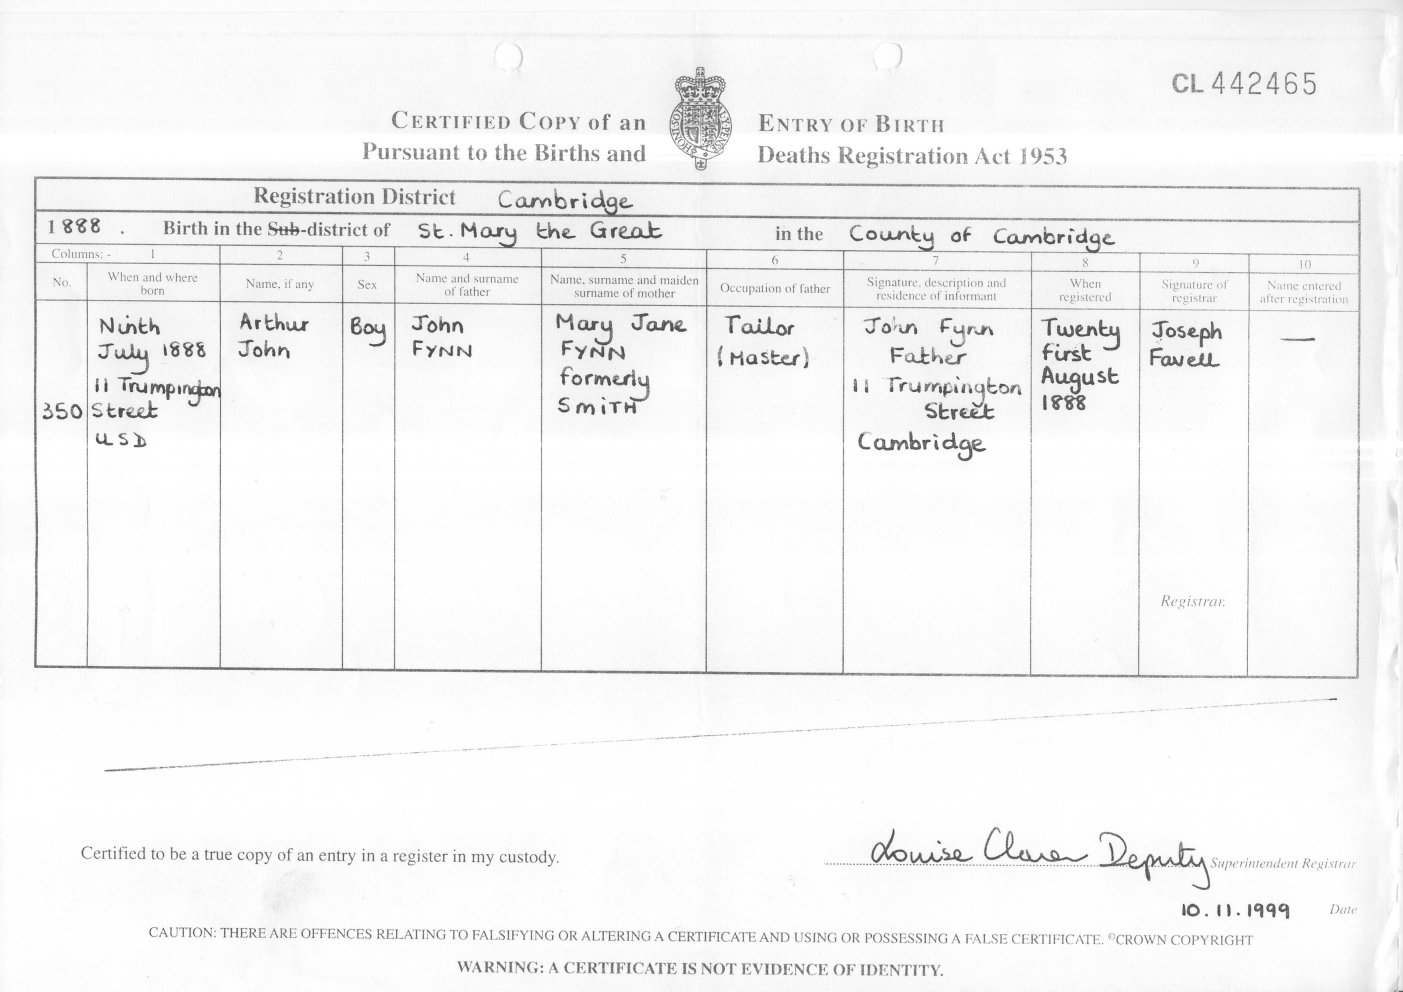 CL 442465
CERTIFIED COPY of an ENTRY OF BIRTH
Pursuant to the Births and Deaths Registration Act 1953
Registration District Cambridge
1888 . Birth in the Sub-district of St. Mary the Great in the County of Cambridge
Columns: - 1 2 3 4 5 6 7 8 9 10
No.
When and where
born
Name, if any
Sex
Name and surname
of father
Name, surname and maiden
surname of mother
Occupation of father
Signature, description and
residence of informant
When
registered
Signature of
registrar
Name entered
after registration
350
Ninth
July 1888
11 Trumpington
Street
USD
Arthur
John
Boy
John
FYNN
Mary Jane
FYNN
formerly
SMITH
Tailor
(Master)
John Fynn
Father
11 Trumpington
Street
Cambridge
Twenty
first
August
1888
Joseph
Favell
Registrar.
—
Certified to be a true copy of an entry in a register in my custody.
Louise Deputy Superintendent Registrar
10.11.1999 Date
CAUTION: THERE ARE OFFENCES RELATING TO FALSIFYING OR ALTERING A CERTIFICATE AND USING OR POSSESSING A FALSE CERTIFICATE. ©CROWN COPYRIGHT
WARNING: A CERTIFICATE IS NOT EVIDENCE OF IDENTITY.